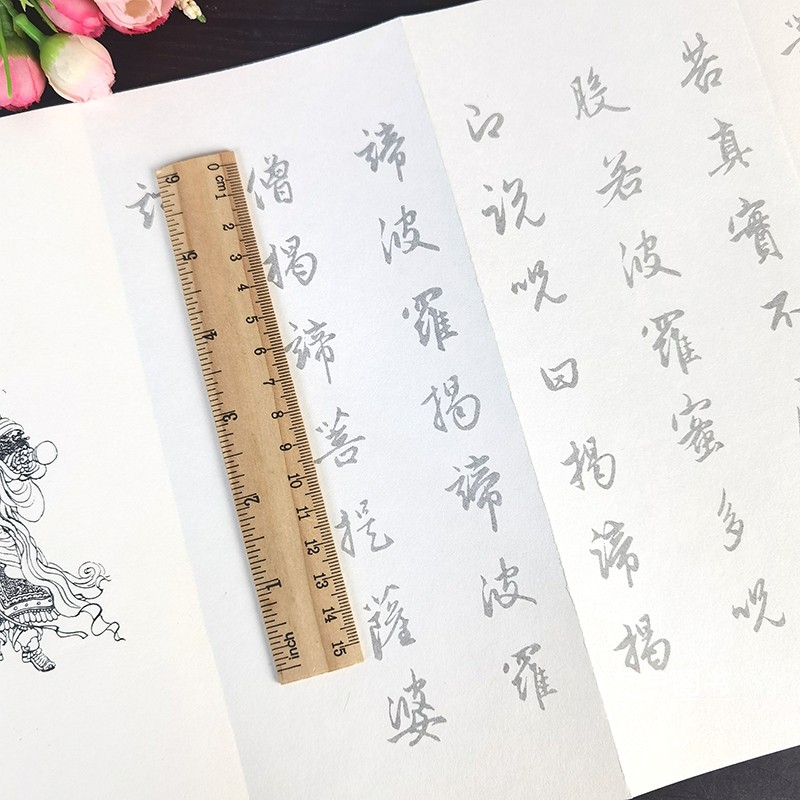 苦真實不
般若波羅蜜多呪
即说呪曰揭諦揭
諦波羅揭諦波羅
僧揭諦菩提薩婆
0 cm 1 2 3 4 5 6 7 8 9 10 11 12 13 14 15
inch 1 2 3 4 5 6